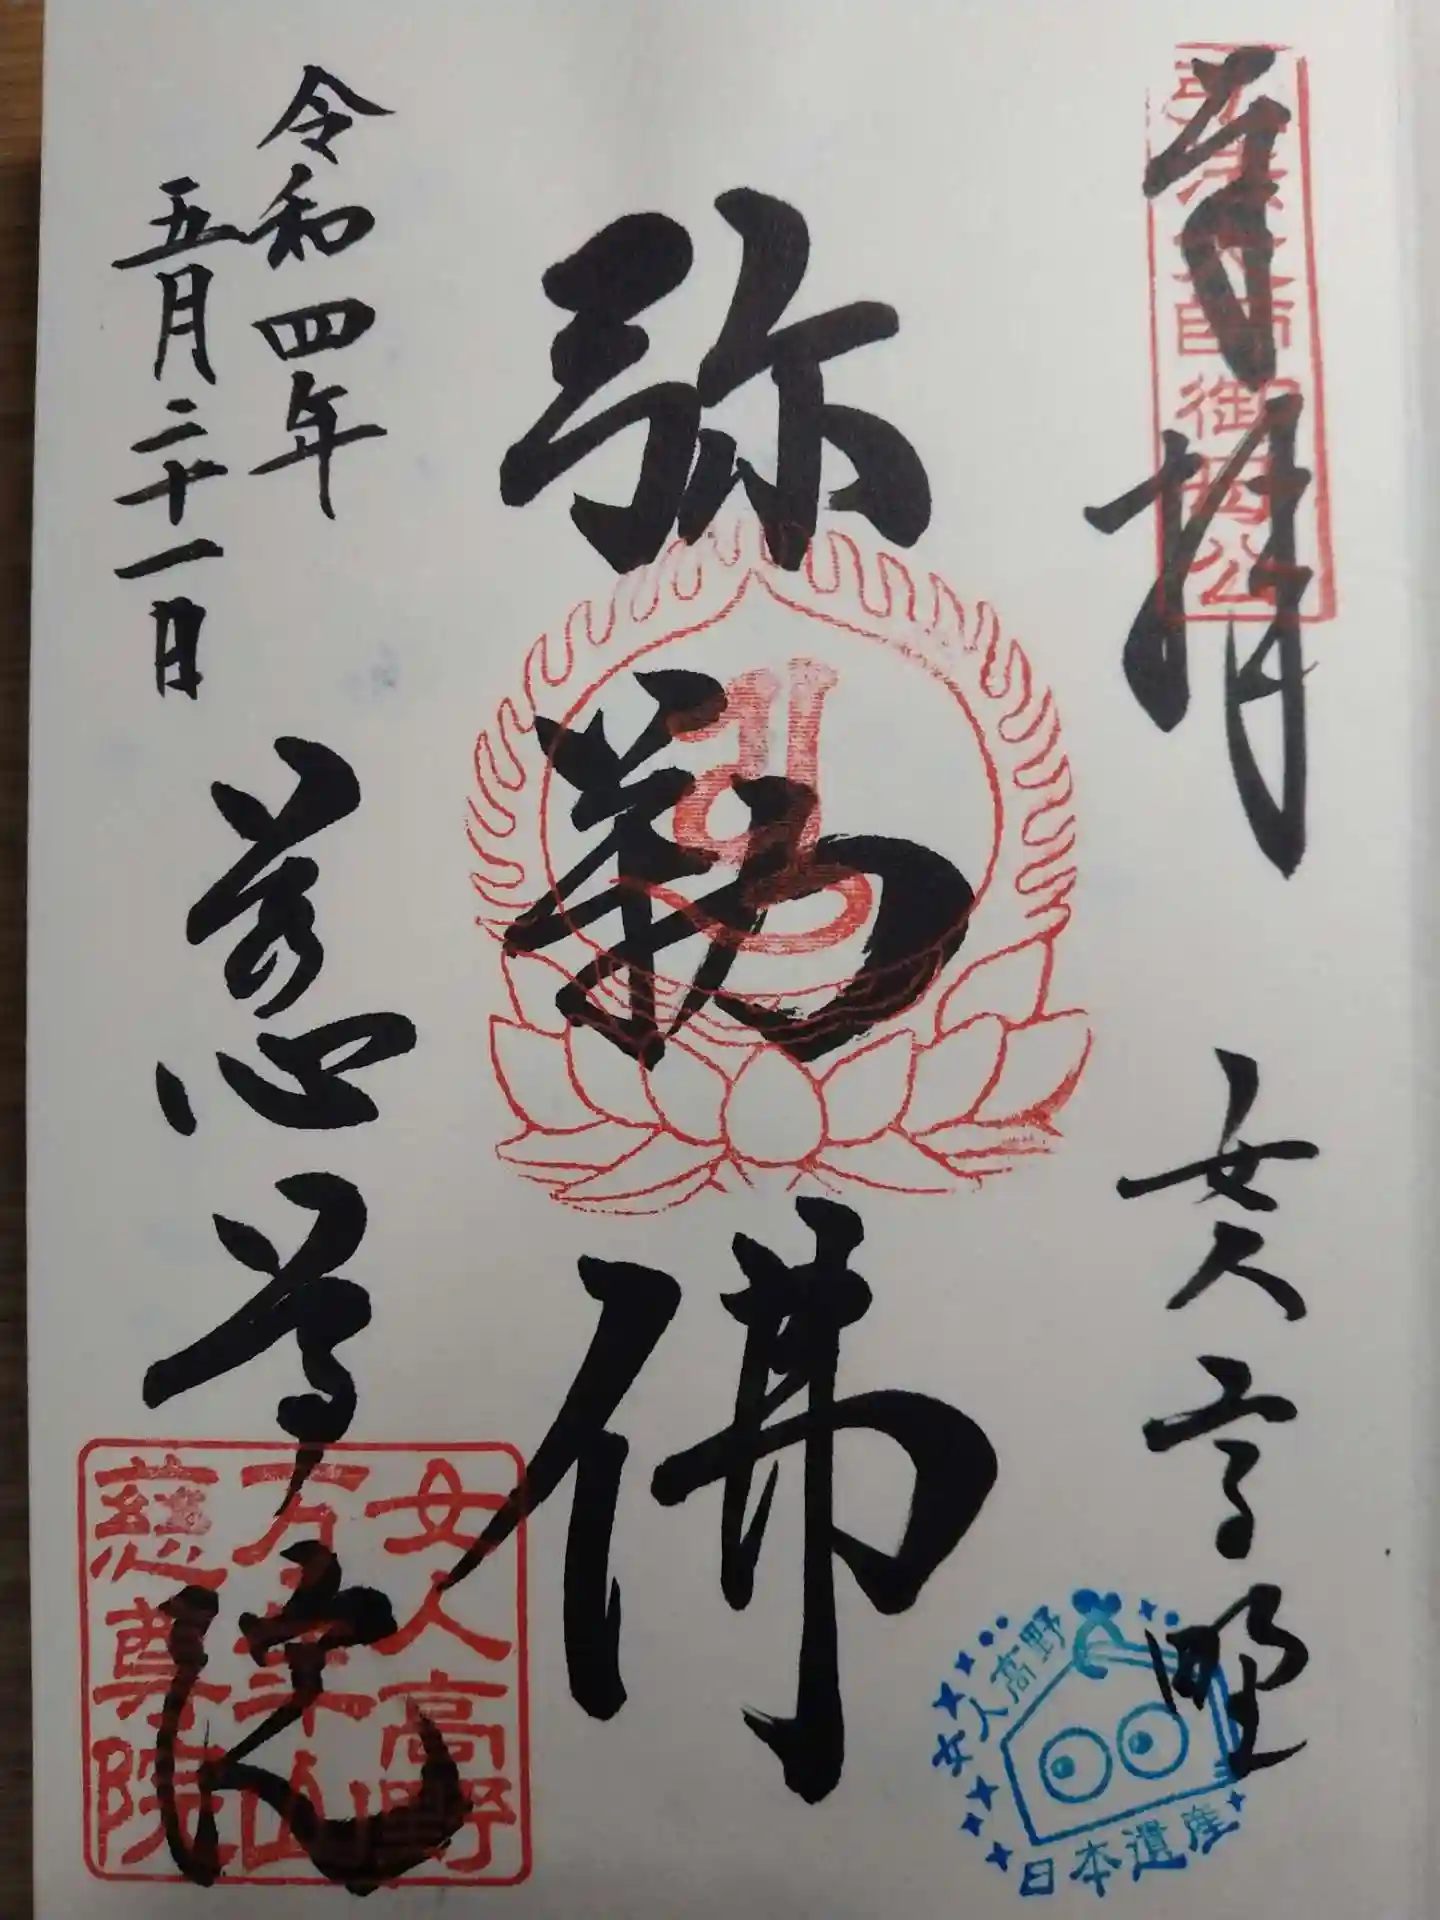 奉拝
弘法大師御母公
女人高野
弥勒佛
令和四年
五月二十一日
慈尊院
女人高野
万年山
慈尊院
女人高野
日本遺産